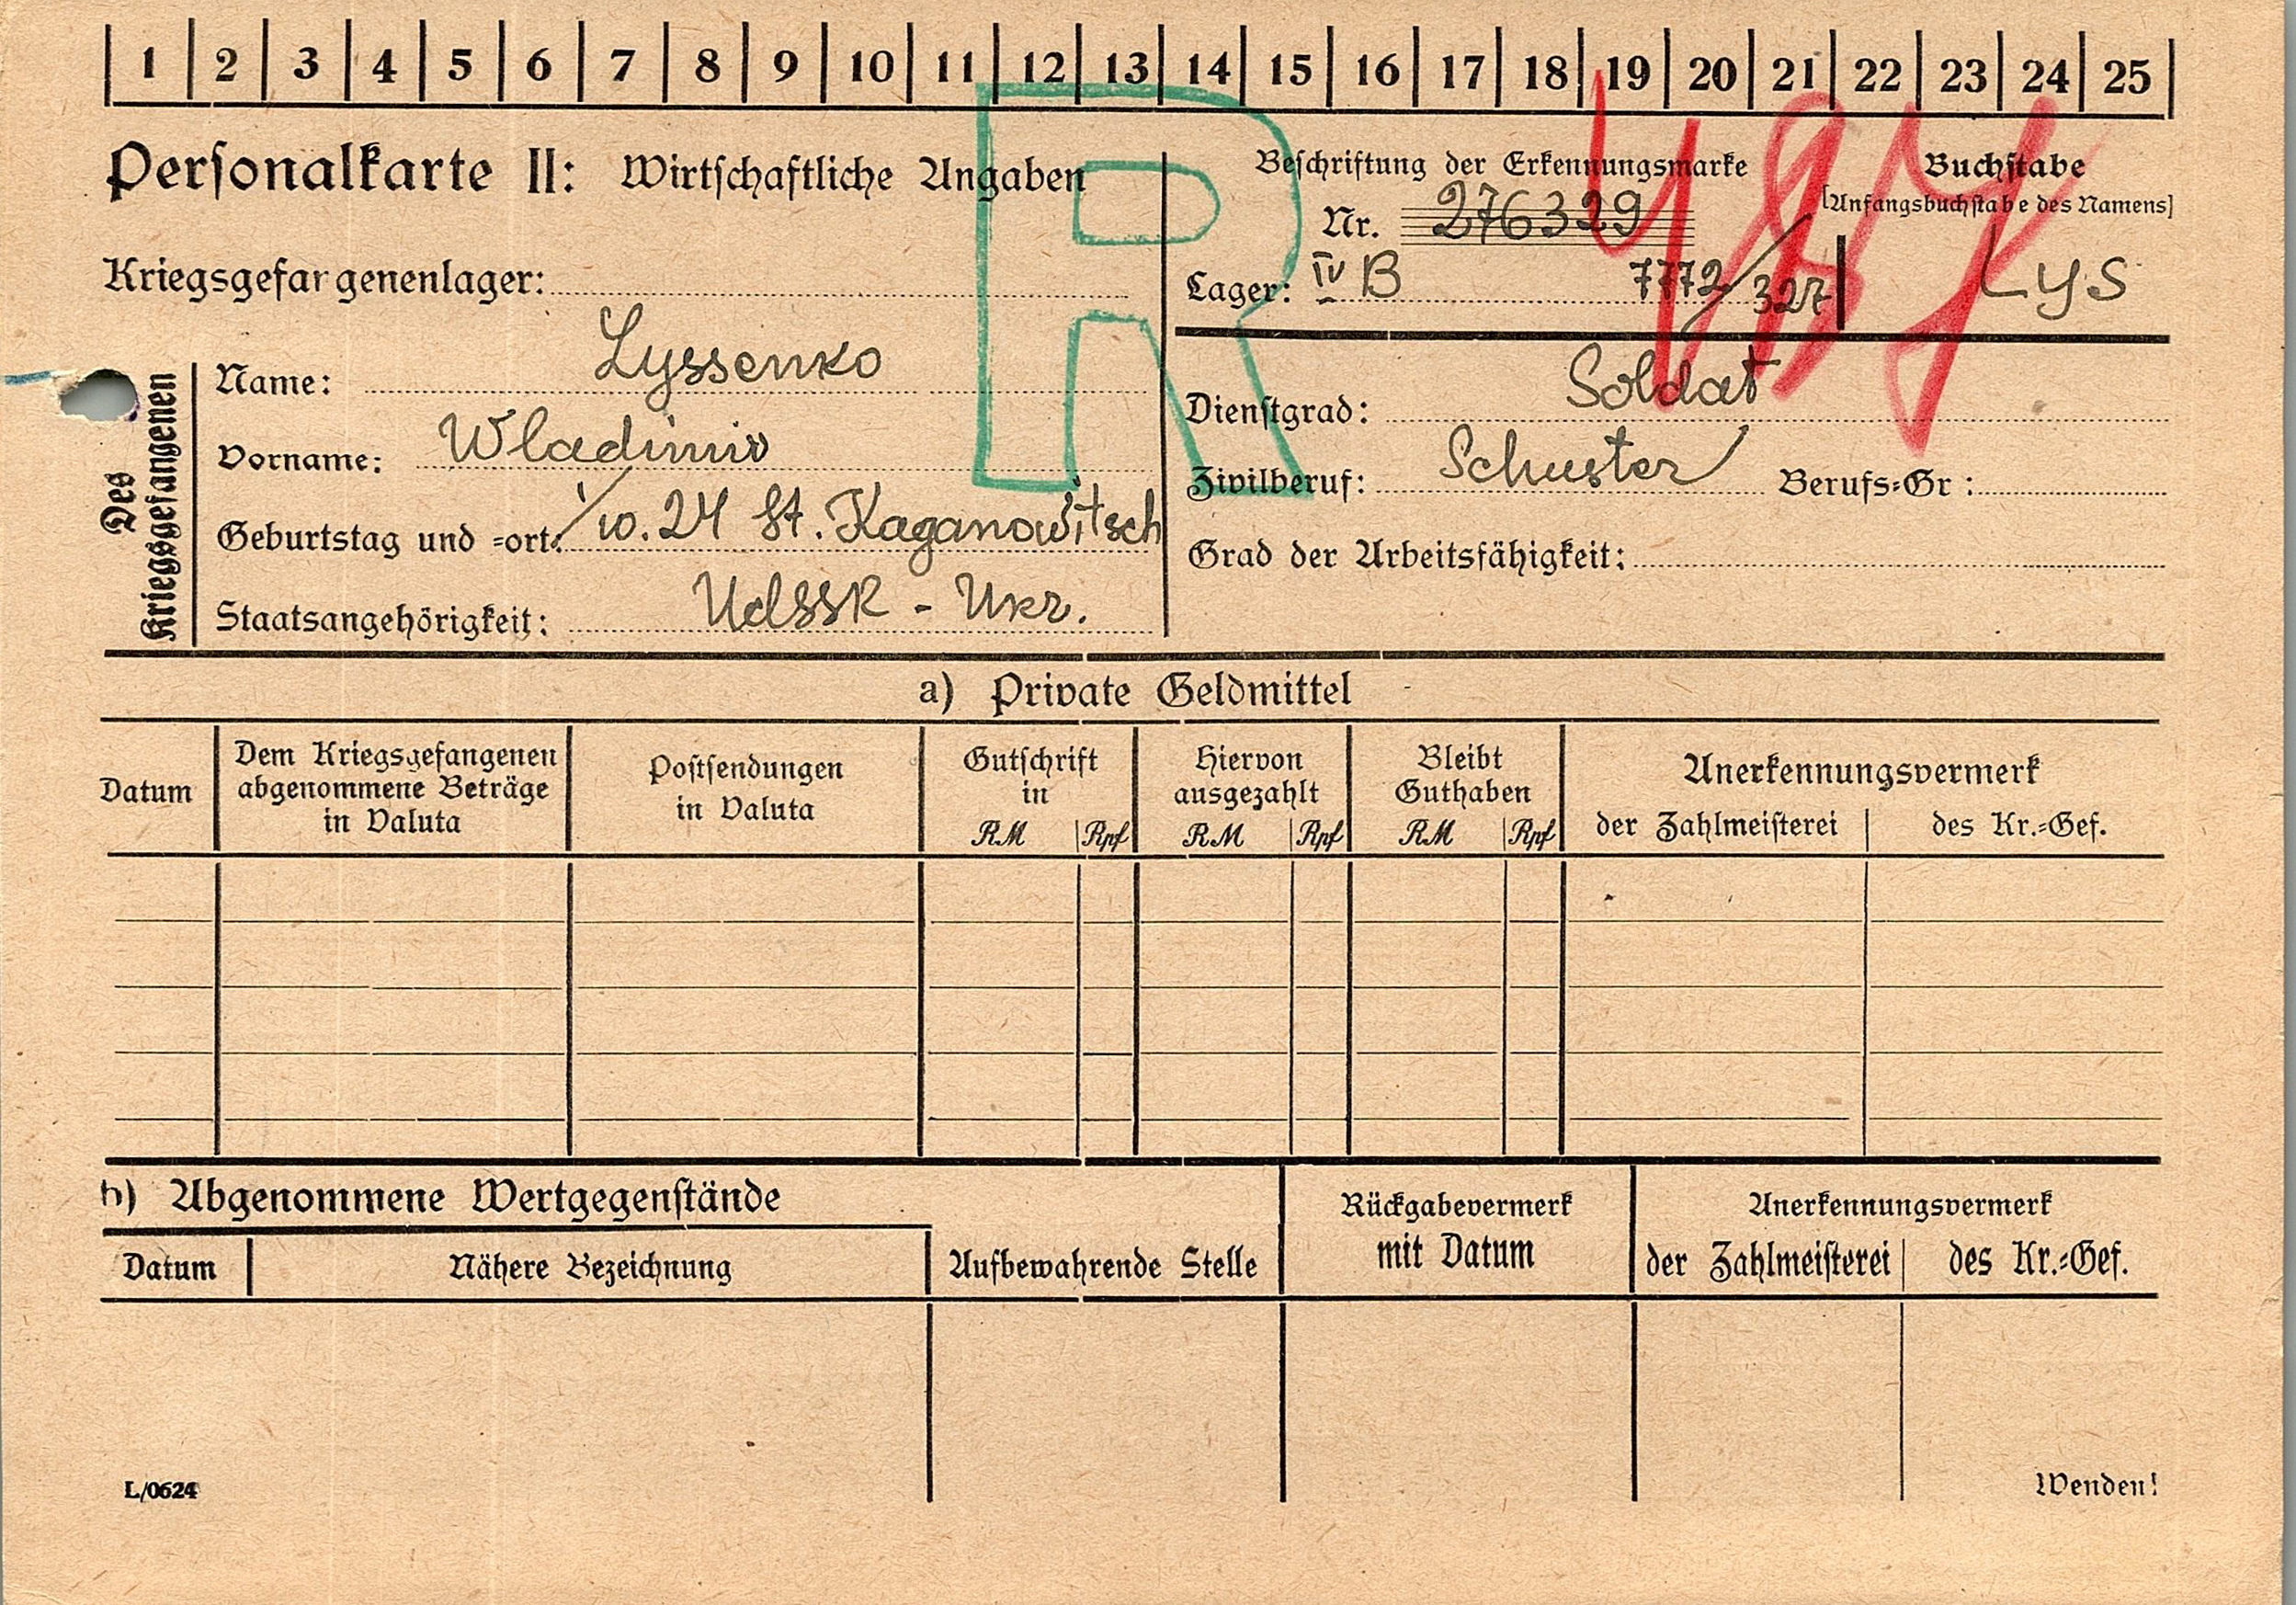 1 2 3 4 5 6 7 8 9 10 11 12 13 14 15 16 17 18 19 20 21 22 23 24 25
Personalkarte II: Wirtschaftliche Angaben
Beschriftung der Erkennungsmarke
Nr. 276329
Lager: IV B 7772/327
Buchstabe
[Anfangsbuchstabe des Namens]
Lys
R
Kriegsgefangenenlager:
Des Kriegsgefangenen
Name: Lyssenko
Vorname: Wladimir
Geburtstag und =ort: 10.24 St. Kaganowitsch
Staatsangehörigkeit: UdSSR - Ukr.
Dienstgrad: Soldat
Zivilberuf: Schuster Berufs=Gr:
Grad der Arbeitsfähigkeit:
a) Private Geldmittel
Datum
Dem Kriegsgefangenen
abgenommene Beträge
in Valuta
Postsendungen
in Valuta
Gutschrift
in
RM Rpf
Hiervon
ausgezahlt
RM Rpf
Bleibt
Guthaben
RM Rpf
Anerkennungsvermerk
der Zahlmeisterei des Kr.=Gef.
b) Abgenommene Wertgegenstände
Datum Nähere Bezeichnung
Aufbewahrende Stelle
Rückgabevermerk
mit Datum
Anerkennungsvermerk
der Zahlmeisterei des Kr.=Gef.
L/0624
Wenden!